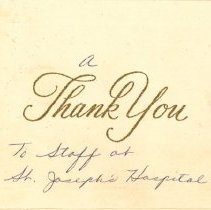 a
Thank You
To Staff at
St. Joseph's Hospital